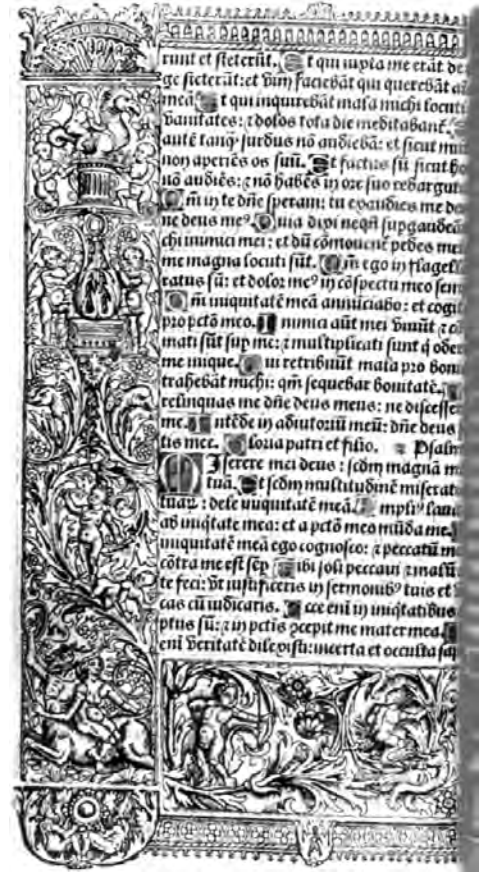 runt et steterūt. Et qui iuxta me erāt de
ge steterūt: et vim faciebāt qui querebāt
meā. Et qui inquirebāt mala michi locuti
vanitates: ⁊ dolos tota die meditabant.
autē tanq̄ surdus nō audiebā: et sicut
non aperiēs os suū. Et factus sū sicut ho
nō audiēs: ⁊ nō habēs in ore suo redargut
Qm̄ in te dn̄e speraui: tu exaudies me
ne deus meꝰ. Quia dixi neqn̄ supgaudeā
chi inimici mei: et dū cōmouent pedes
me magna locuti sūt. Qm̄ ego in flagell
ratus sū: et dolor meꝰ in cōspectu meo sem
Qm̄ iniquitatē meā annūciabo: et cogit
pro pctō meo. Inimici aūt mei viuūt ⁊
mati sūt sup me: ⁊ multiplicati sunt q̇ oder
me inique. Qui retribuūt mala pro boni
trahebāt michi: qm̄ sequebar bonitatē.
relinquas me dn̄e deus meus: ne discesser
me. Intēde in adiutoriū meū: dn̄e deus
tis mee. Gloria patri et filio. Psalm
MIserere mei deus: scdm̄ magnā
tuā. Et scdm̄ multitudinē miserat
tuaꝝ: dele iniquitatē meā. Amplius laua
ab iniq̇tate mea: et a pctō meo mūda me.
iniquitatē meā ego cognosco: ⁊ peccatū
cōtra me est sēp. Tibi soli peccaui ⁊ malū
te feci: vt iustificeris in sermonibꝰ tuis et
cas cū iudicaris. Ecce eni in iniq̇tatibus
ptus sū: ⁊ in pctis ꝯcepit me mater mea.
eni veritatē dilexisti: incerta et occulta